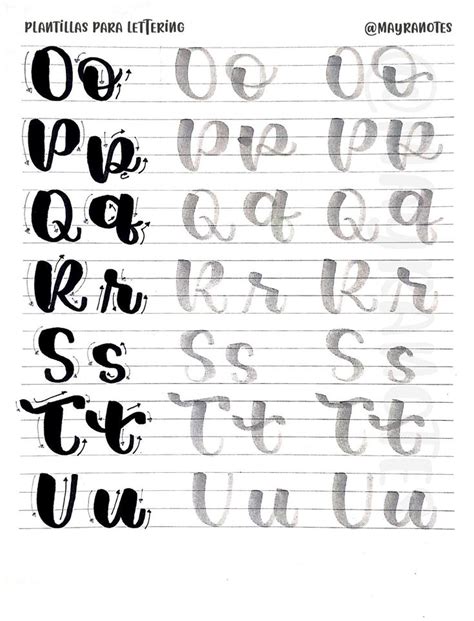 PLANTILLAS PARA LETTERING @MAYRANOTES
Oo Oo Oo
Pp Pp Pp
Qq Qq Qq
Rr Rr Rr
Ss Ss Ss
Tt Tt Tt
Uu Uu Uu
@MAYRANOTES